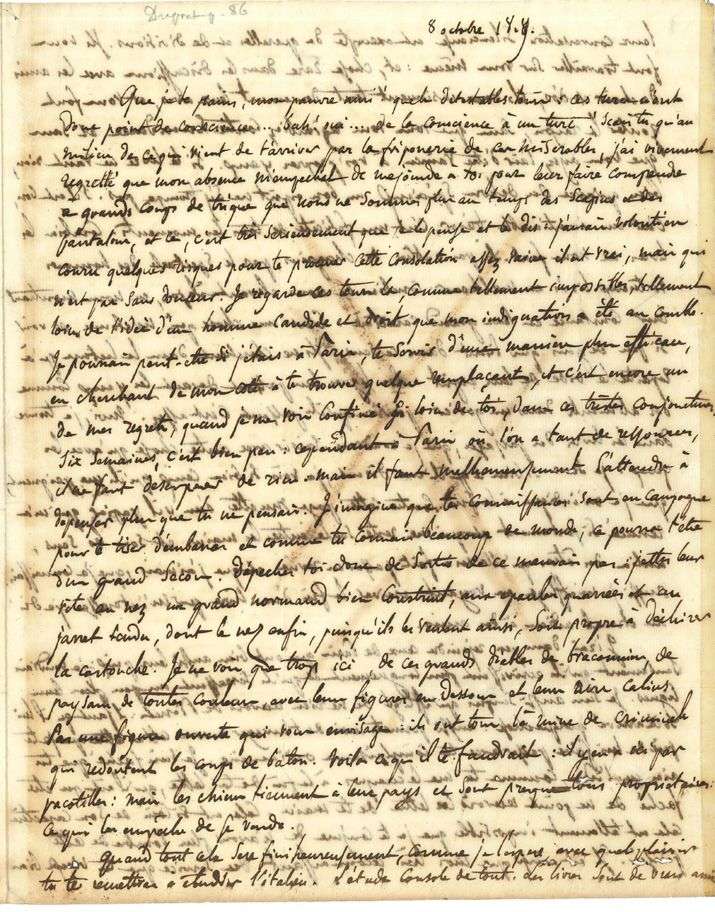 Dupont p. 86
8 octobre 18
Que je te plains, mon pauvre ami ! quels détestables tours ces turcs
Dont point de conscience... bah ! oui... de la conscience à un turc ! Scais tu qu'au
milieu de ce qui vient de t'arriver par la friponerie de ces misérables, j'ai vivement
regretté que mon absence m'empechat de me joindre à toi pour leur faire comprendre
à grands coups de trique que nous ne sommes plus au temps des Scapins et des
pantalons, et ce, c'est très sérieusement que je le pense et te le dis. j'aurais volontiers
couru quelques risques pour te procurer cette consolation assez vaine il est vrai, mais qui
n'est pas sans douceur. Je regarde ces tours là, comme tellement impossibles, tellement
loin de l'idée d'un homme candide et droit que mon indignation a été au comble.
Je pourrais peut-être si j'étais à Paris, te servir d'une manière plus efficace,
en cherchant de mon coté à te trouver quelque remplaçant, et c'est encore un
de mes regrets, quand je me vois confiné si loin de toi, dans ces tristes conjonctures.
Six semaines, c'est bien peu : cependant à Paris où l'on a tant de ressources,
il ne faut désespérer de rien. mais il faut malheureusement s'attendre à
dépenser plus que tu ne pensais. J'imagine que tes connaissances sont en campagne
pour te tirer d'embarras et comme tu connais beaucoup de monde, ce pourra t'être
d'un grand secours. Dépeches toi donc de sortir de ce mauvais pas : jettes leur
vite au nez un grand normand bien construit, aux epaules quarrées et au
jarret tendu, dont le nez enfin, puisqu'ils le veulent ainsi, soit propre à déchirer
la cartouche. Je ne vois que trop ici de ces grands diables de braconniers, de
paysans de toutes couleurs, avec leur figures en dessous et leur airs calins.
Pas une figure ouverte qui vous envisage : ils ont tous la mine de criminels
qui redoutent les coups de baton. Voilà ce qu'il te faudrait : il y en a par
pacotilles : mais les chiens tiennent à leur pays et sont presque tous propriétaires :
ce qui les empêche de se vendre.
Quand tout cela sera fini heureusement, comme je l'espere, avec quel plaisir
tu te remettras à etudier l'italien. L'étude console de tout. Les livres sont de vrais amis